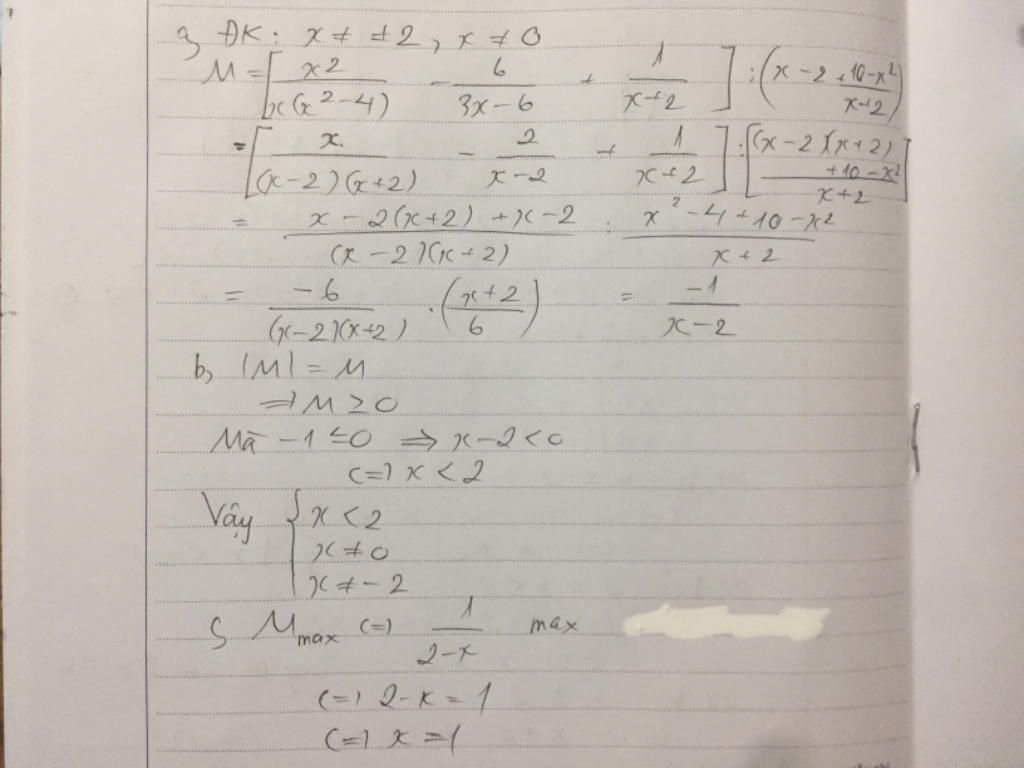 a, ĐK: x ≠ ±2, x ≠ 0
M = [x²/(x(x²-4)) - 6/(3x-6) + 1/(x+2)] : (x - 2 + (10-x²)/(x+2))
= [x/((x-2)(x+2)) - 2/(x-2) + 1/(x+2)] : [((x-2)(x+2) + 10 - x²)/(x+2)]
= (x - 2(x+2) + x - 2)/((x-2)(x+2)) : (x² - 4 + 10 - x²)/(x+2)
= -6/((x-2)(x+2)) . ((x+2)/6) = -1/(x-2)
b, |M| = M
=> M ≥ 0
Mà -1 ≤ 0 => x-2 < 0
<=> x < 2
Vậy { x < 2
x ≠ 0
x ≠ -2
c, M max <=> 1/(2-x) max
<=> 2-x = 1
<=> x = 1